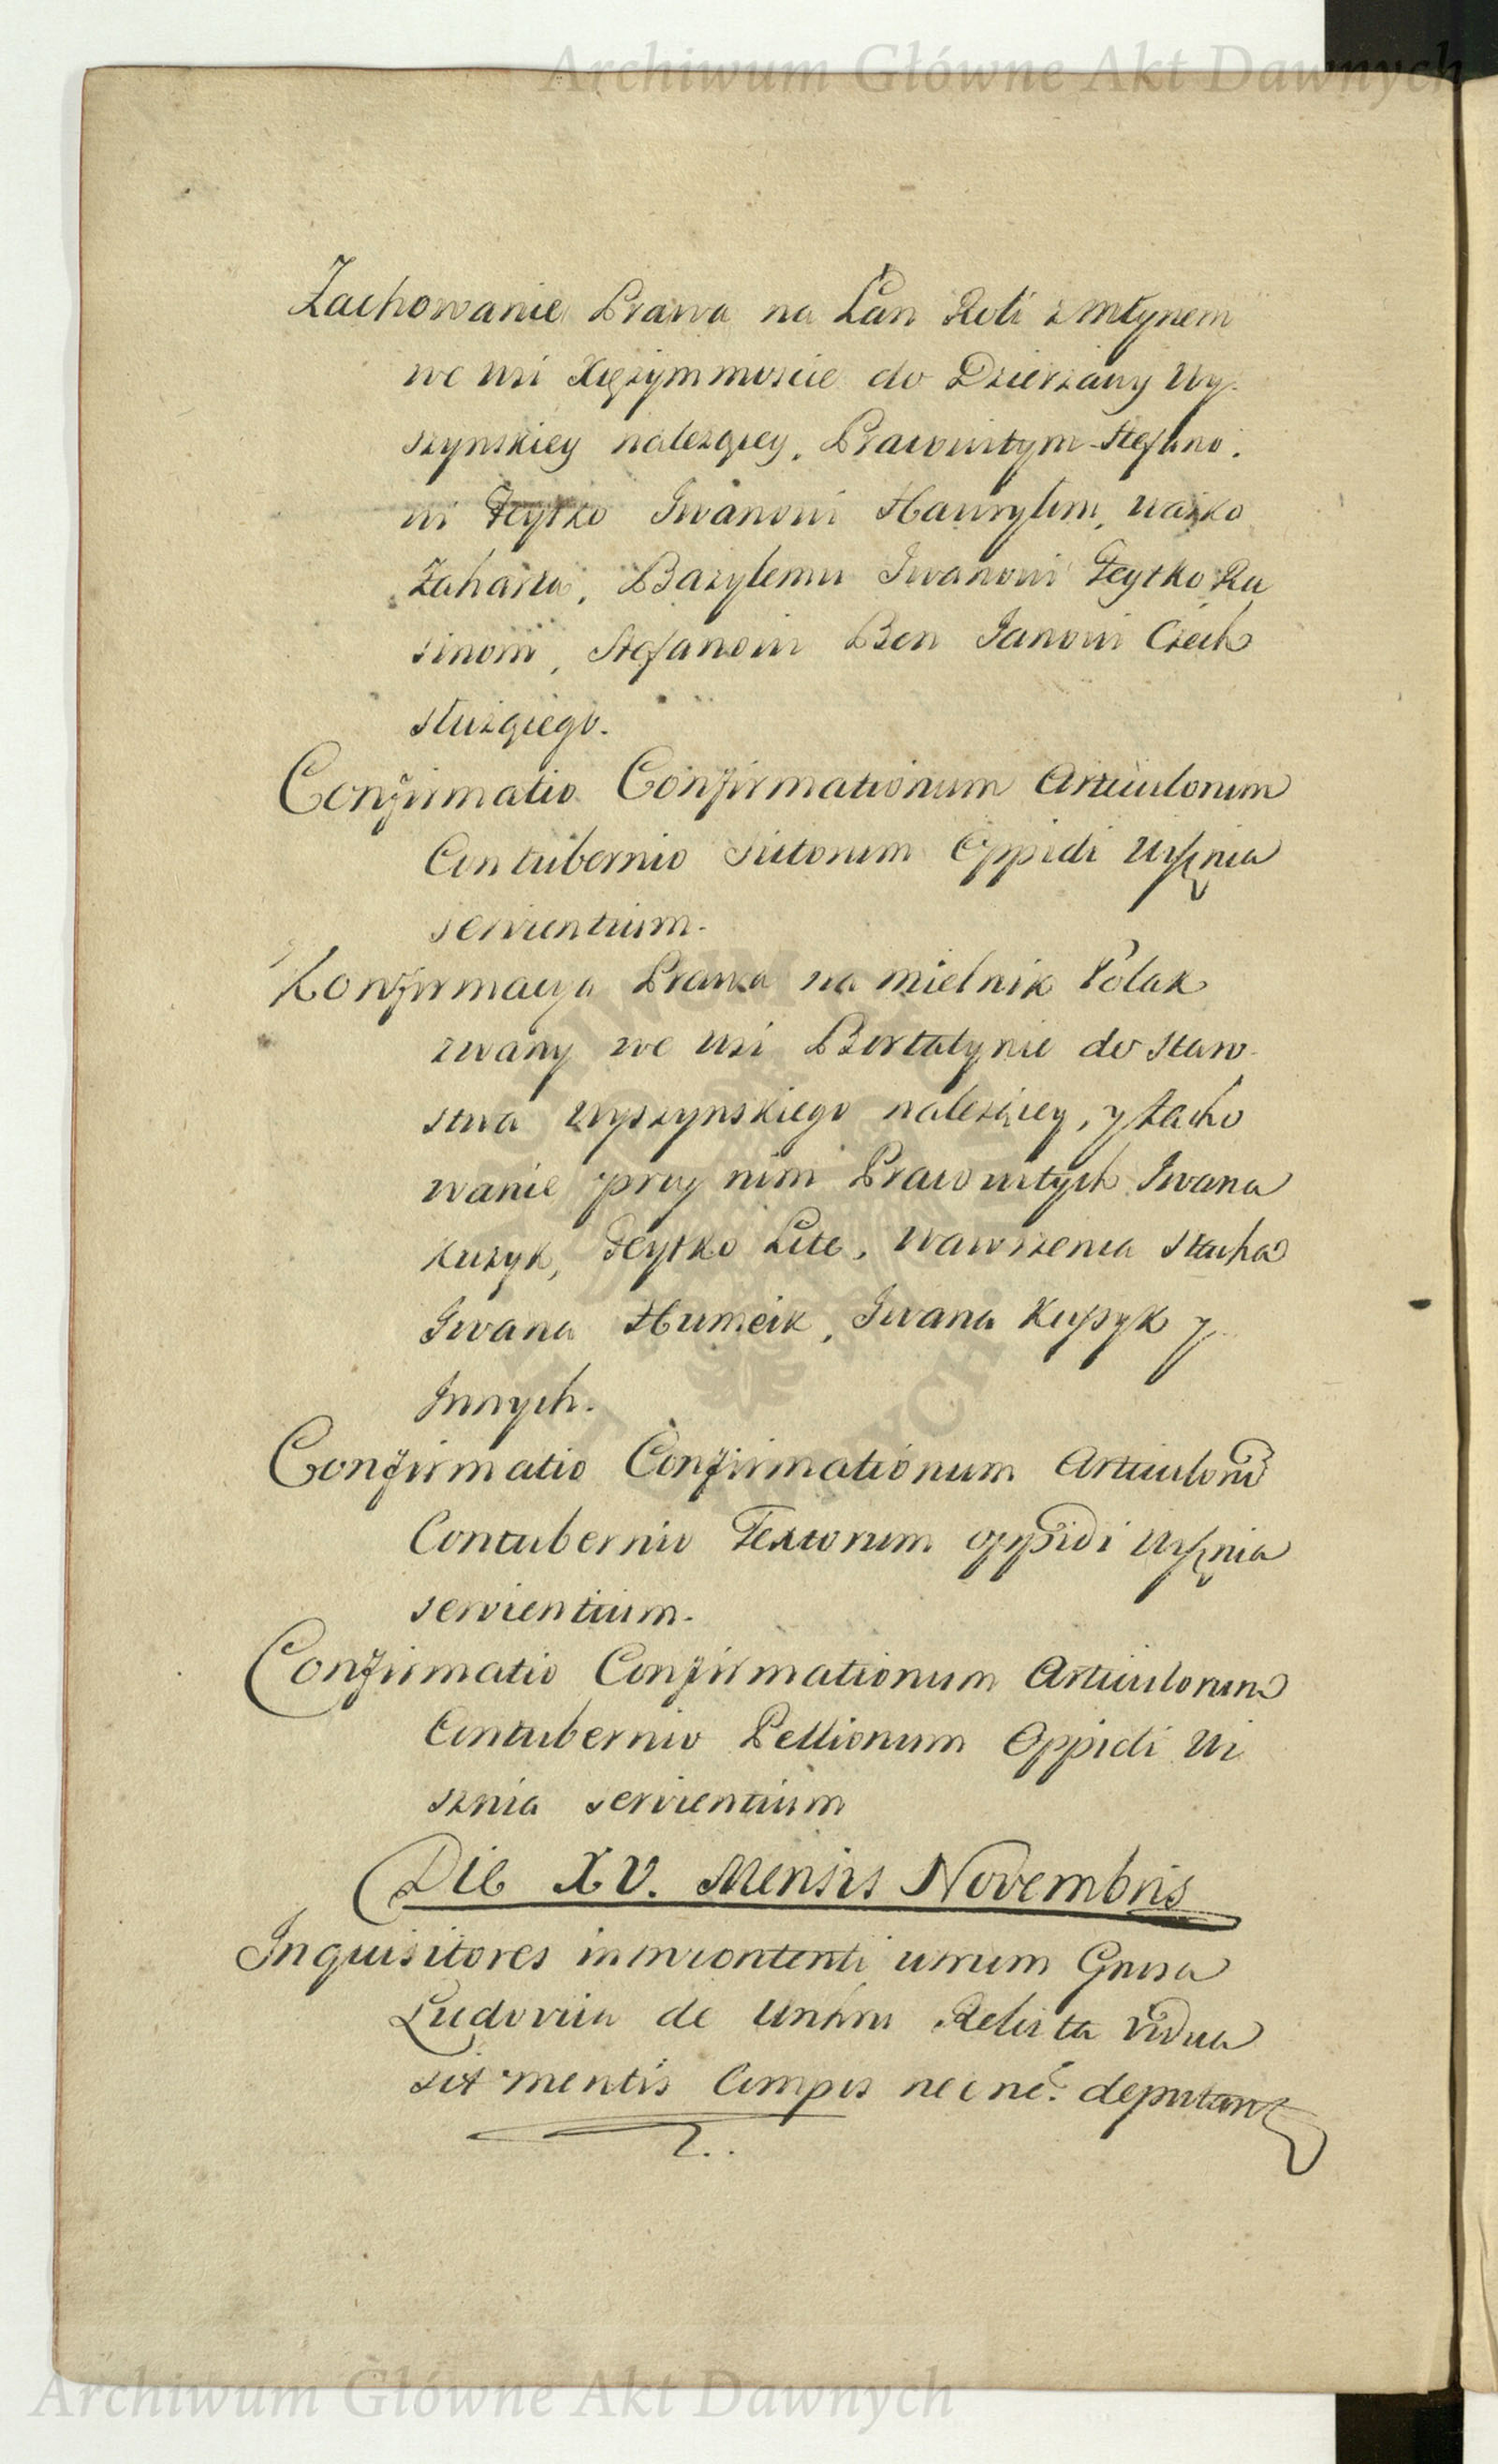 Archiwum Główne Akt Dawnych
Zachowanie Prawa na Łan Roli z młynem
we wsi Xiężymmoście do Dzierżawy Wy-
szynskiey należącey, Pracowitym Stefano.
wi Feytko Iwanowi Hawrylim, Wasko
Zahaira, Bazylemu Iwanowi Feytko Ru
sinom, Stefanowi Ben Janowi Czech
służącego.
Confirmatio Confirmationum Articulorum
Contubernio Sutorum Oppidi Wisznia
servientium.
Konfirmacya Prawa na mielnik Polak
zwany we wsi Bortatynie do Staro-
stwa Wyszynskiego należącey, y Zacho
wanie przy nim Pracowitych Iwana
Kuzyk, Feytko Lite, Wawrzenca Stacha
Iwana Humeik, Iwana Kupyk y
Innych.
Confirmatio Confirmationum Articuloru
Contubernio Textorum Oppidi Wisznia
servientium.
Confirmatio Confirmationum Articulorum
Contubernio Pellionum Oppidi Wi
sznia servientium
Die XV. Mensis Novembris
Inquisitores in incontenti utrum Gnosa
Ludovica de Relicta Vidua
sit mentis Compos nec ne? deputant
Archiwum Główne Akt Dawnych